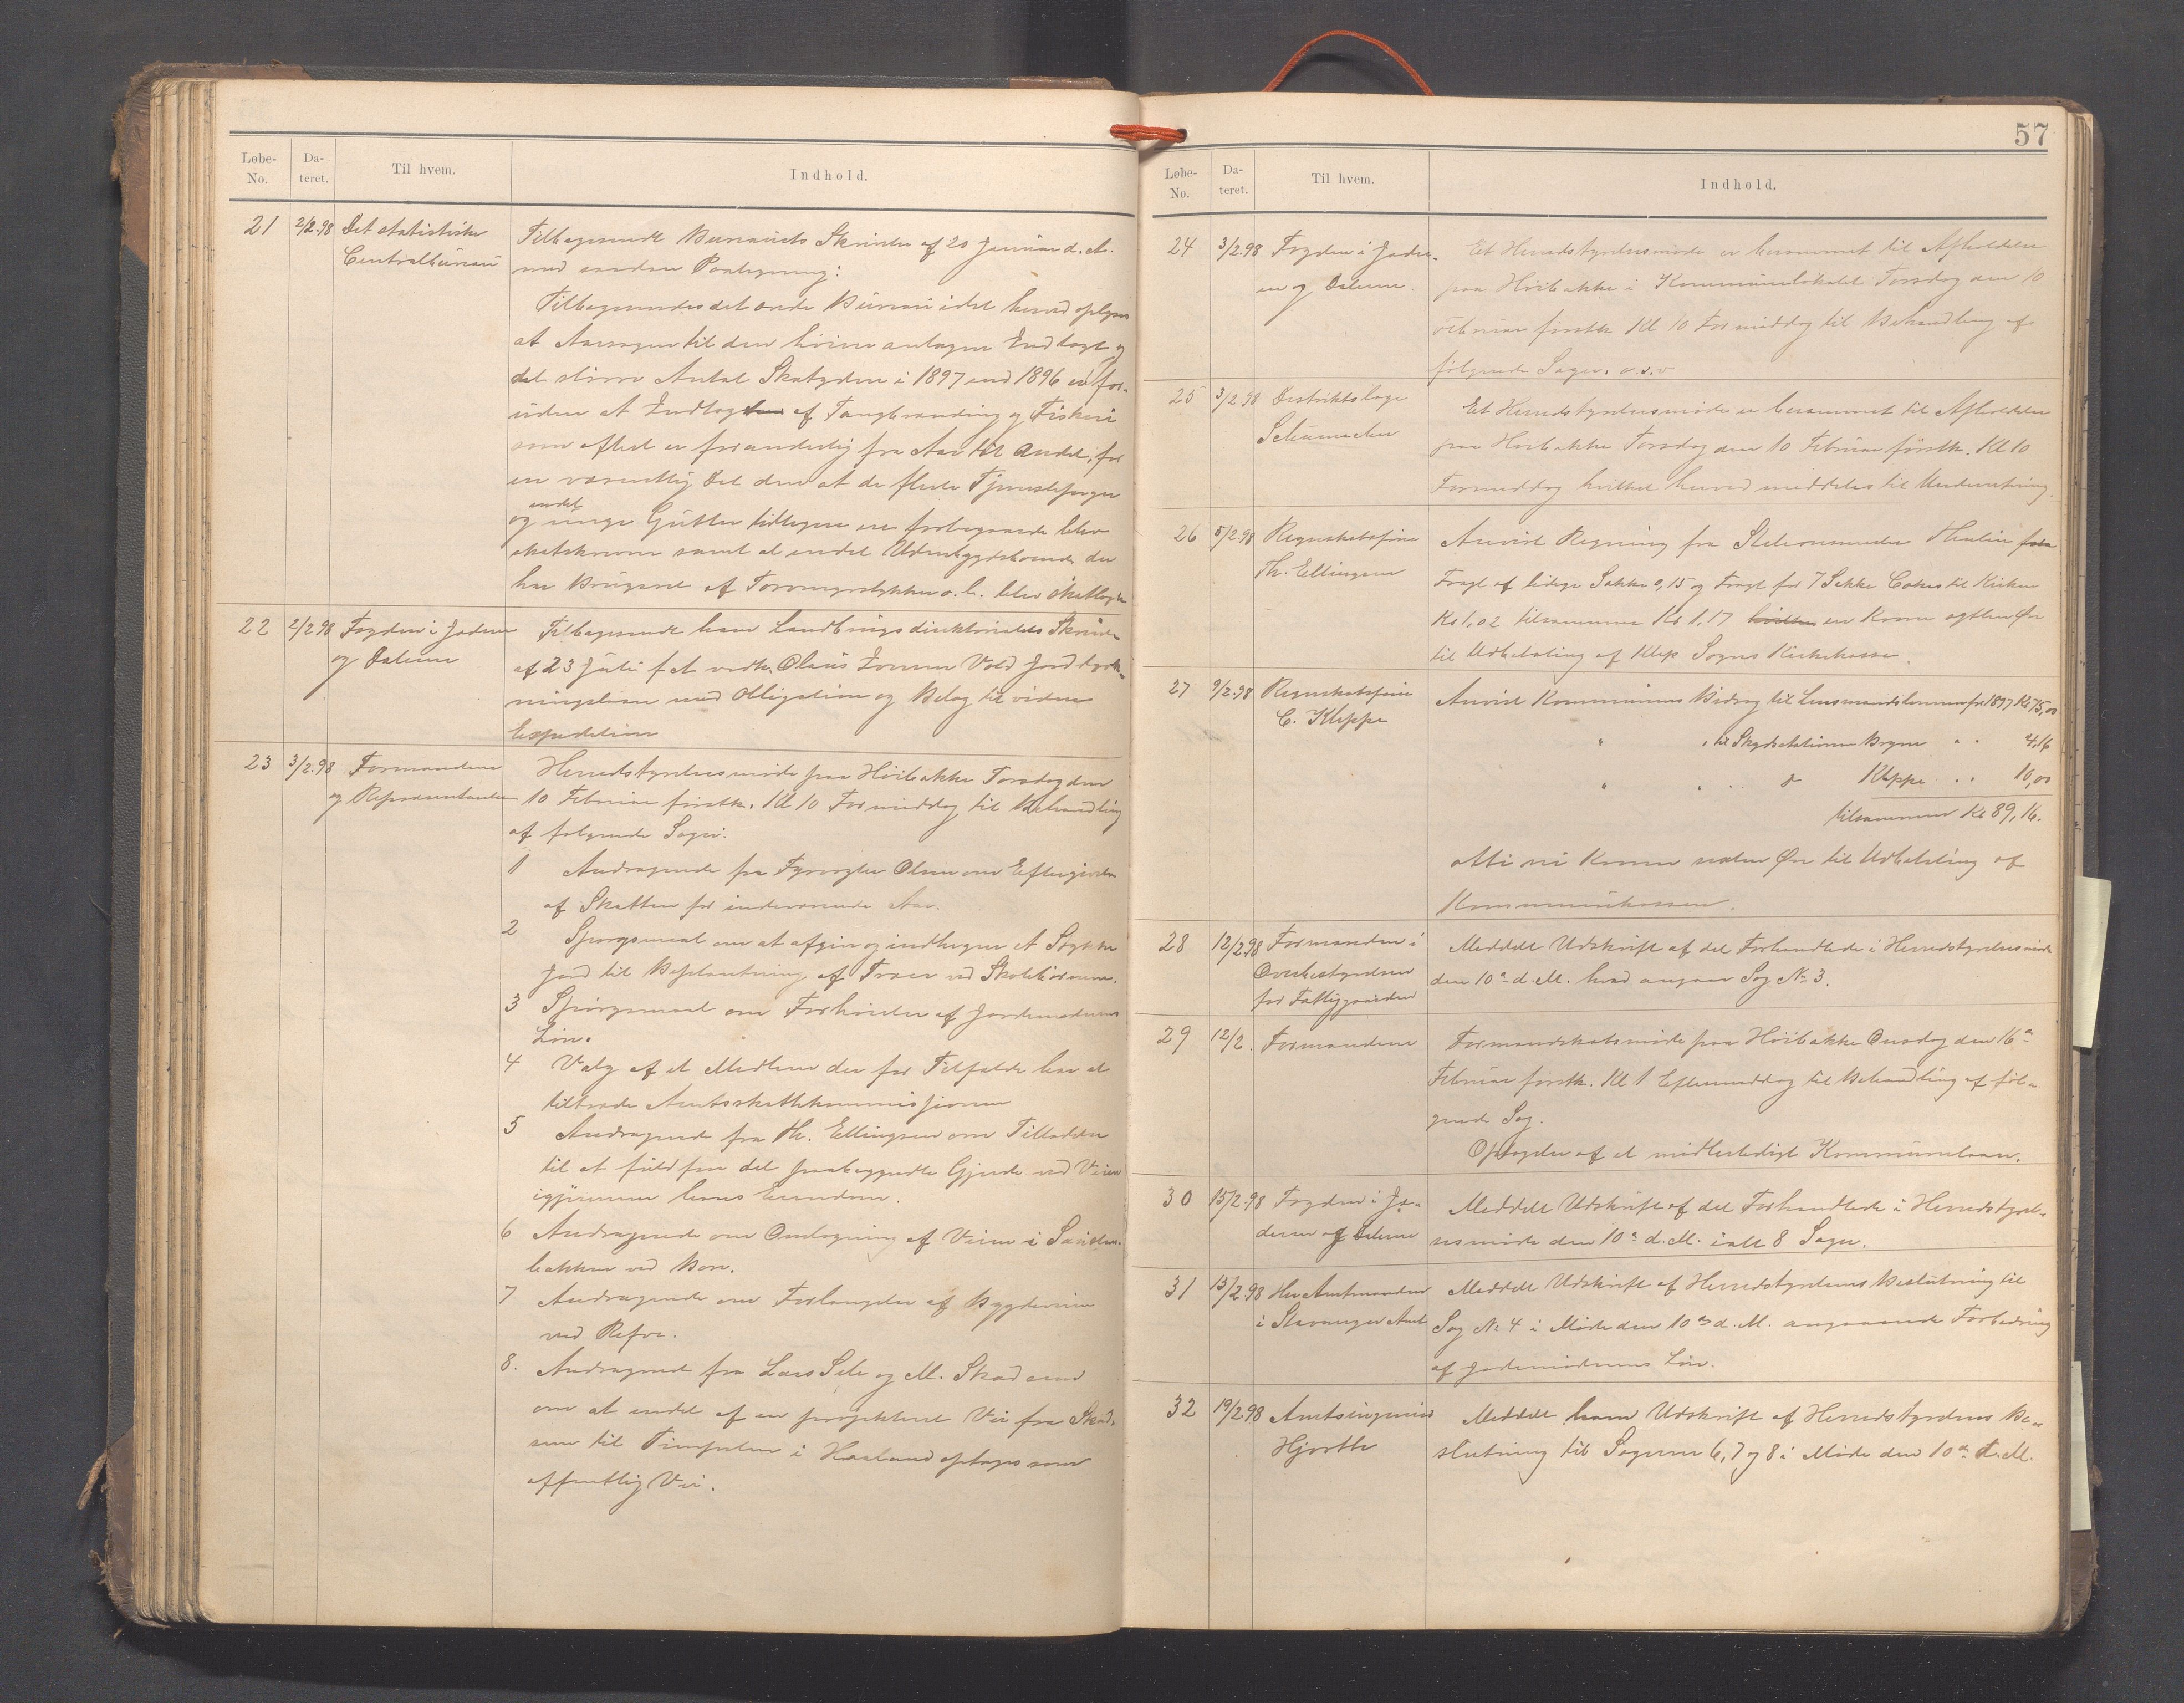 Løbe-
No.
Da-
teret.
Til hvem.
Indhold.
21 2/2.98 Det statistiske
Centralbureau
Tilbagesendt Bureauets Skrivelse af 20 Januar d. A.
med saadan Paategning:
Tilbagesendes det ærede Bureau idet herved oplyses
at Aarsagen til den høiere antagne Indtægt og
det større Antal Skatydere i 1897 end 1896 er for-
uden at Indtægten af Tangbrænding og Fiskeri
som oftest er foranderlig fra Aar til andet, for
en væsentlig Del den at de fleste Tjenestepiger
og endel unge Gutter tidligere end forbigaaede blev
skatskrevne samt at endel Udenbygdsboende der
har Brugsret af Torvmyrstykker o. l. blev skatlagte
22 2/2 98 Fogden i Jæderen
og Dalerne
Tilbagesendt ham Landbrugsdirektoratets Skrivelse
af 23 Juli f. A. vedk. Olaus Vold Jorddyrk-
ningslaan med Obligation og Belag til videre
Expedition
23 3/2.98 Formændene
og Repræsentanter
Herredstyrelsesmøde paa Høibakke Torsdag den
10 Februar førstk. Kl 10 Formiddag til Behandling
af følgende Sager:
1 Andragende fra Fyrvogter Olsen om Eftergivelse
af Skatten for indeværende Aar.
2 Spørgsmaal om at afgive og indhegne et Stykke
Jord til Beplantning af Træer ved Skolehusene.
3 Spørgsmaal om Forhøielse af Jordemoderens
Løn.
4 Valg af et Medlem der for Tilfælde har at
tiltræde Amtsskattekommissionen
5 Andragende fra Th. Ellingsen om Tilladelse
til at fuldføre det paabegyndte Gjerde ved Veien
igjennem hans Eiendom.
6 Andragende om Omlægning af Veien i
bakken ved Bore.
7 Andragende om Forlængelse af Bygdeveien
ved Refve.
8. Andragende fra Lars Sele og M. Skadsem
om at endel af en projekteret Vei fra Skad-
sem til i Haaland optages som
offentlig Vei.
57
Løbe-
No.
Da-
teret.
Til hvem.
Indhold.
24 3/2.98 Fogden i Jæder-
en og Dalerne
Et Herredstyrelsesmøde er berammet til Afholdelse
paa Høibakke i Kommunelokalet Torsdag den 10
Februar førstk. Kl 10 Formiddag til Behandling af
følgende Sager. o.s.v
25 3/2 98 Distriktslæge
Schumacher
Et Herredstyrelsesmøde er berammet til Afholdelse
paa Høibakke Torsdag den 10 Februar førstk. Kl 10
Formiddag hvilket herved meddeles til Underretning.
26 5/2.98 Regnskabsfører
Th. Ellingsen
Anvist Regning fra Stationsmester Thulin for
Fragt af ledige Sække 0,15 og Fragt for 7 Sække Cokes til Kirken
Kr 1,02 tilsammen Kr 1,17 hvilken en Krone sytten Øre
til Udbetaling af Klep Sogns Kirkekasse.
27 9/2.98 Regnskabsfører
C. Kleppe
Anvist Kommunens Bidrag til Lensmandslønnen for 1897 Kr 75,00
" " til Skydsstationen Bryne " " 4,16
" " do Kleppe " " 10,00
tilsammen Kr 89,16.
otti ni Kroner sexten Øre til Udbetaling af
Kommunekassen.
28 12/2.98 Formanden i
Overbestyrelsen
for Fattiggaarden
Meddelt Udskrift af det Forhandlede i Herredstyrelsesmøde
den 10de d. M. hvad angaar Sag No 3.
29 12/2. Formændene
Formandskabsmøde paa Høibakke Onsdag den 16de
Februar førstk. Kl 1 Eftermiddag til Behandling af føl-
gende Sag.
Optagelse af et midlertidigt Kommunelaan.
30 15/2.98 Fogden i Jæ-
deren og Dalerne
Meddelt Udskrift af det Forhandlede i Herredstyrel-
sesmøde den 10de d. M. ialt 8 Sager.
31 15/2.98 Herr Amtmanden
i Stavanger Amt
Meddelt Udskrift af Herredstyrelsens Beslutning til
Sag No 4 i Møde den 10de d. M. angaaende Forbedring
af Jordemødrenes Løn.
32 19/2.98 Amtsingeniør
Hjorth
Meddelt ham Udskrift af Herredstyrelsens Be-
slutning til Sagerne 6, 7 og 8 i Møde den 10de d. M.